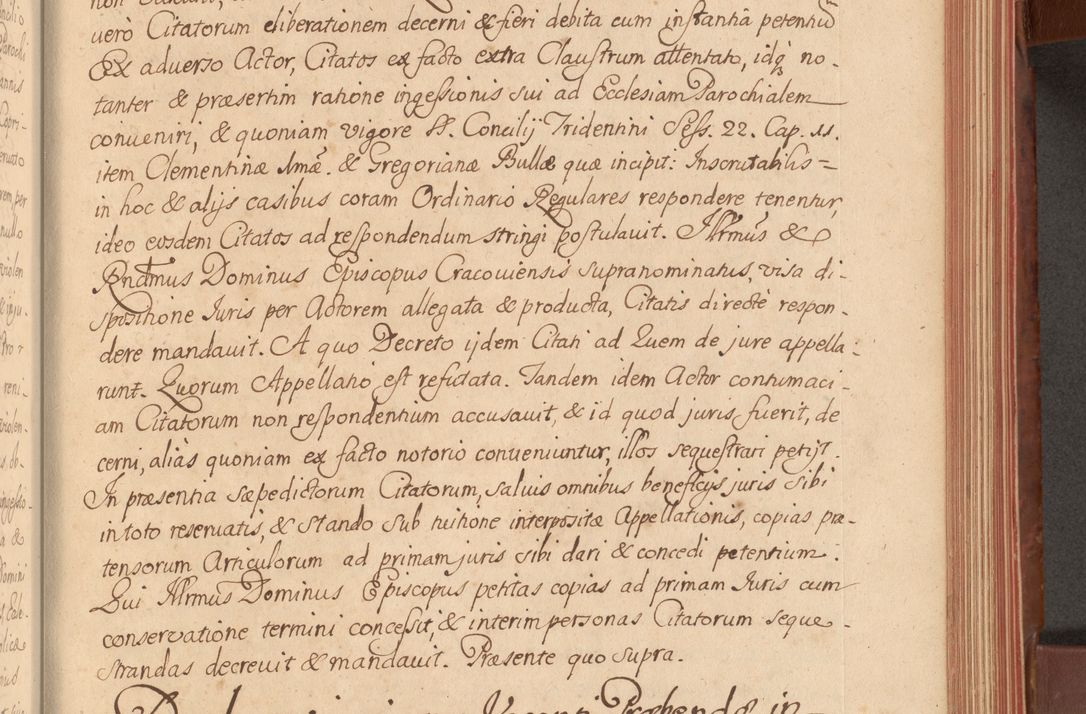 uerò Citatorum eliberationem decerni & fieri debita cum instantia petentiũ
Ex adverso Actor, Citatos ex facto extra Claustrum attentato, idq; no-
tanter & præsertim ratione ingessionis sui ad Ecclesiam Parochialem
conveniri, & quoniam vigore SS. Concilij Tridentini Sess. 22. Cap. 11.
item Clementinæ Imæ. & Gregorianæ Bullæ quæ incipit: Inscrutabilis=
in hoc & alijs casibus coram Ordinario Regulares respondere tenentur,
ideo eosdem Citatos ad respondendum stringi postulavit. Illrmus &
Rndmus Dominus Episcopus Cracoviensis supranominatus, visa di-
spositione Juris per Actorem allegata & producta, Citatis directè respon-
dere mandavit. A quo Decreto ijdem Citati ad Quem de jure appella-
runt. Quorum Appellatio est refutata. Tandem idem Actor contumaci-
am Citatorum non respondentium accusavit, & id quod juris fuerit, de
cerni, aliàs quoniam ex facto notorio conveniuntur, illos sequestrari petijt.
In præsentia sæpedictorum Citatorum, salvis omnibus beneficijs juris sibi
in toto reservatis, & stando sub tuitione interpositæ Appellationis, copias præ-
tensorum Articulorum ad primam juris sibi dari & concedi petentium.
Qui Illrmus Dominus Episcopus petitas copias ad primam Juris cum
conservatione termini concessit, & interim personas Citatorum seque-
strandas decrevit & mandavit. Præsente quo supra.